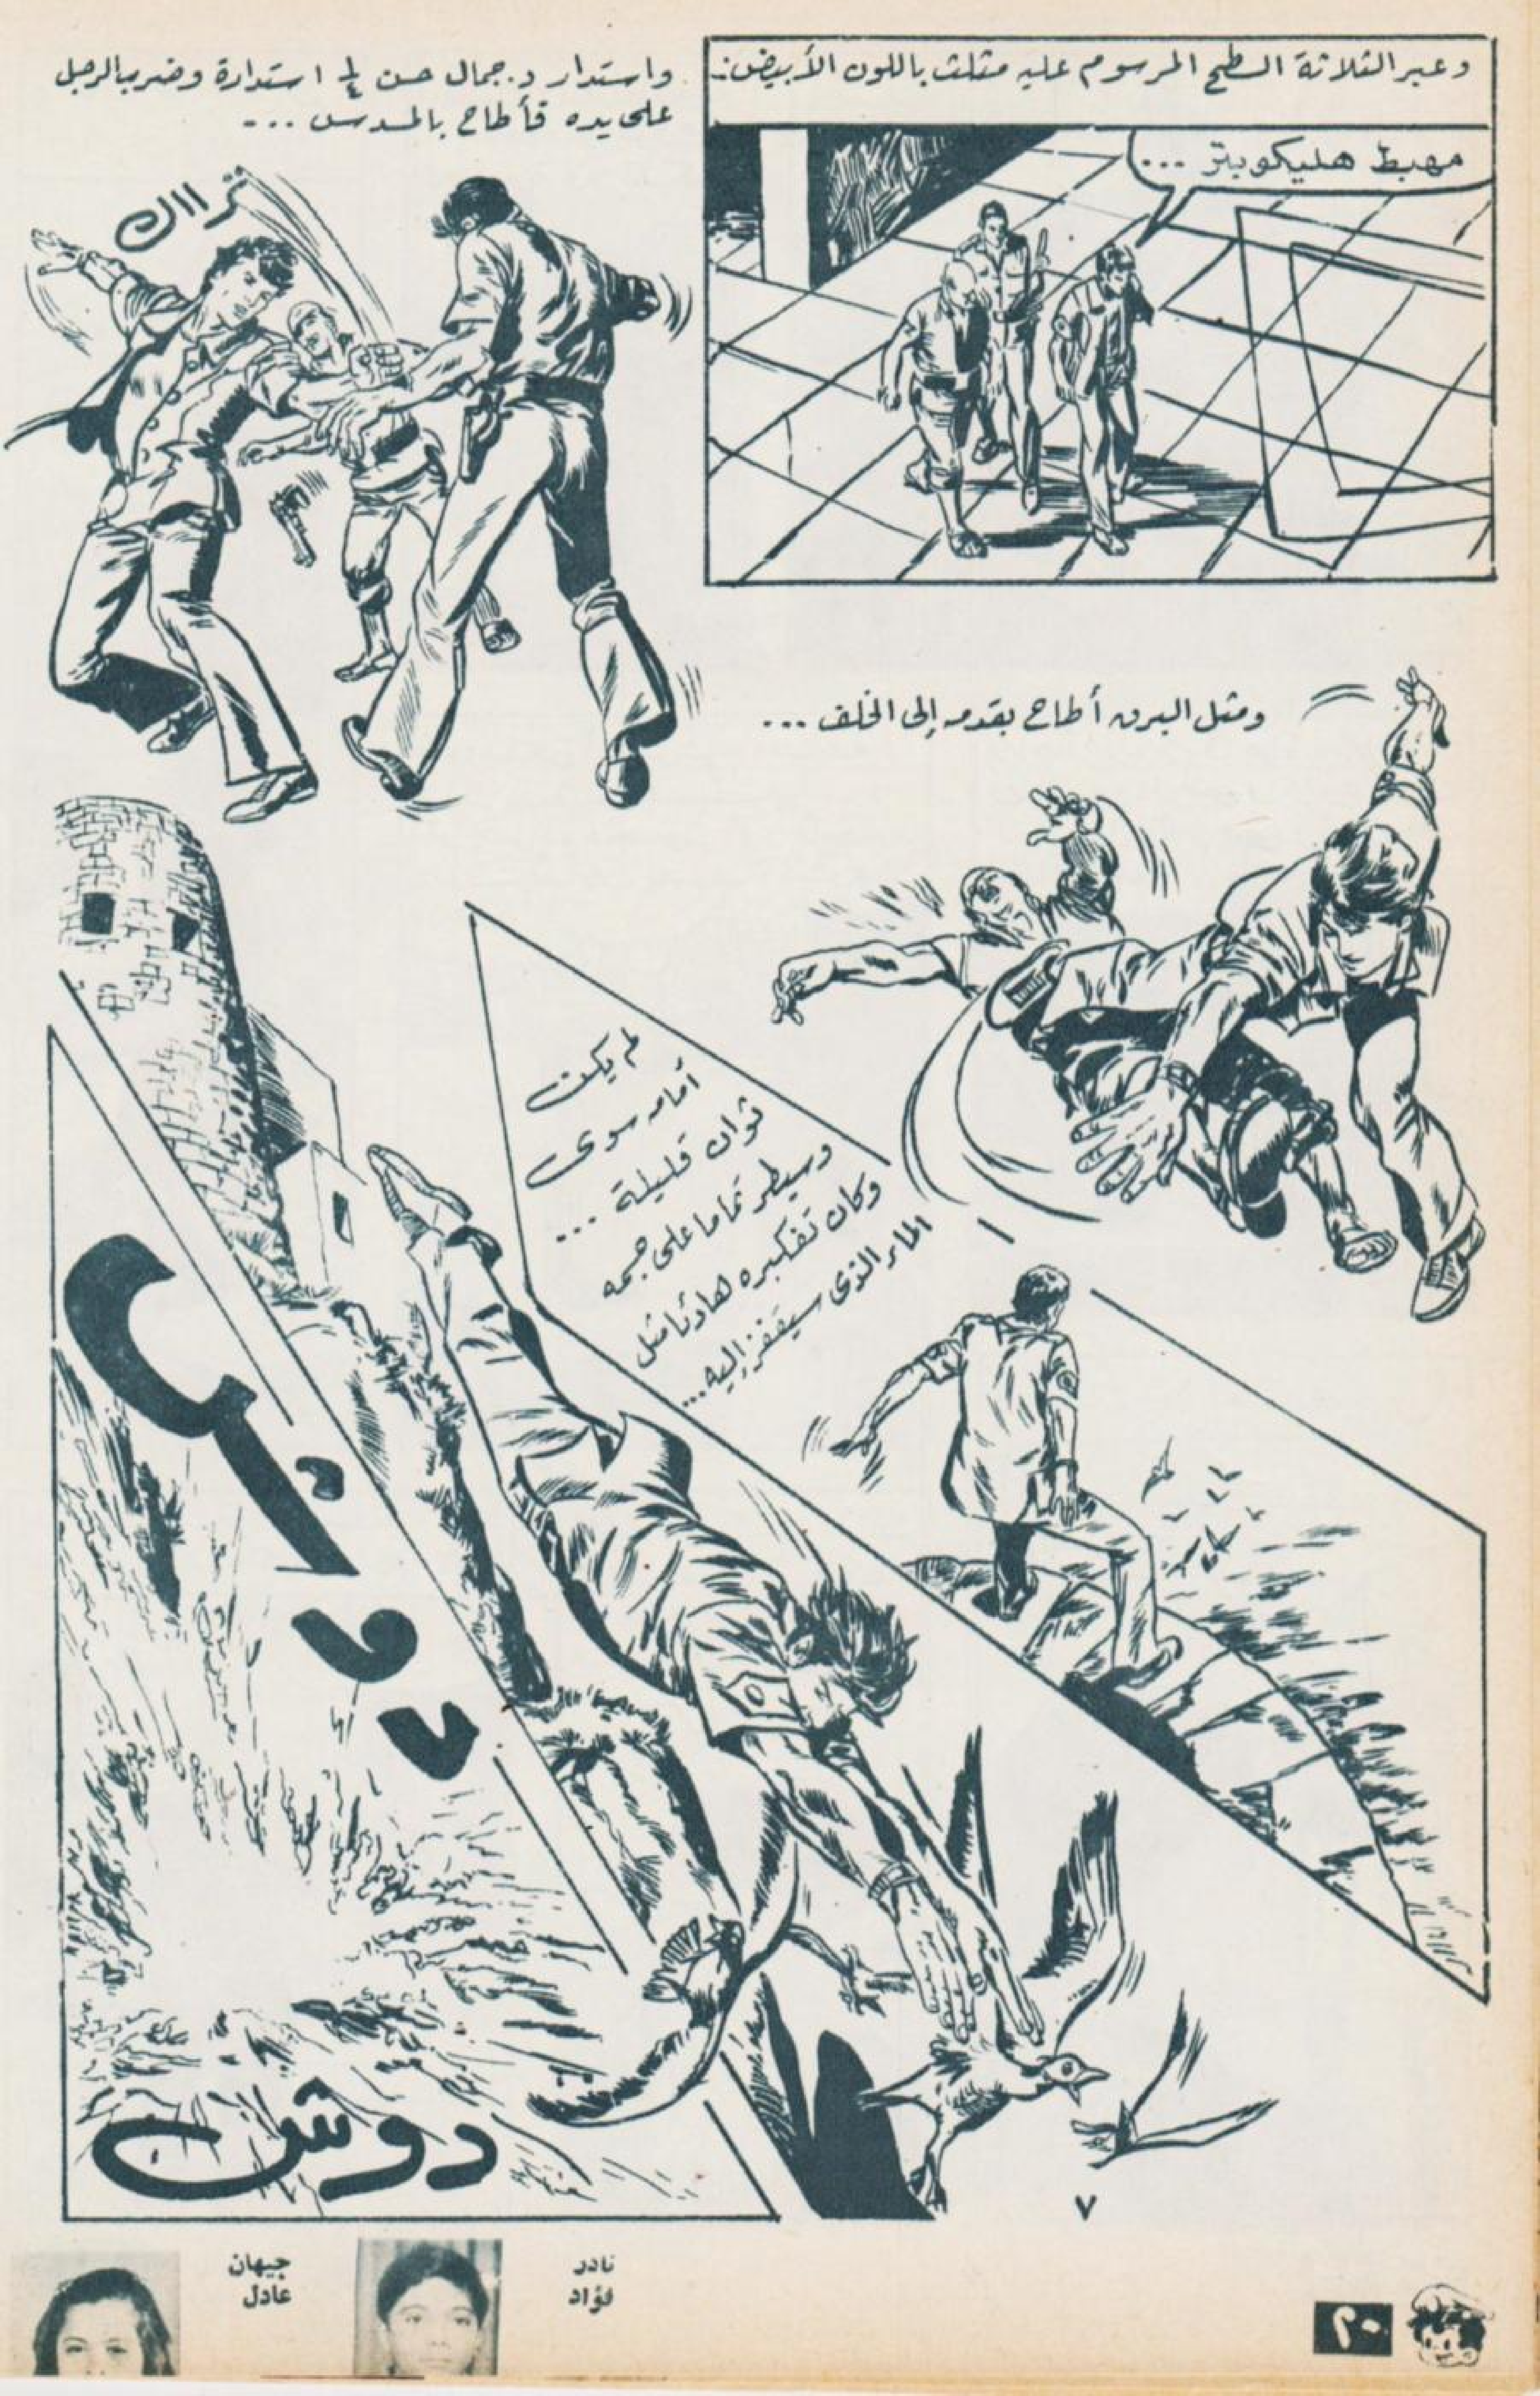 وعبر الثلاثة السطح المرسوم عليه مثلث باللون الأبيض..
مهبط هليكوبتر ...
واستدار د. جمال حسن ¼ استدارة وضرب الرجل
على يده فأطاح بالمسدس ...
تراااك
ومثل البرق أطاح بقدمه إلى الخلف ...
لم يكن
أمامه سوى
ثوان قليلة ...
وسيطر تماما على جسمه
وكان تفكيره هادئا مثل
الماء الذى سيقفز إليه...
دوش
٧
نادر
فؤاد
جيهان
عادل
٢٠